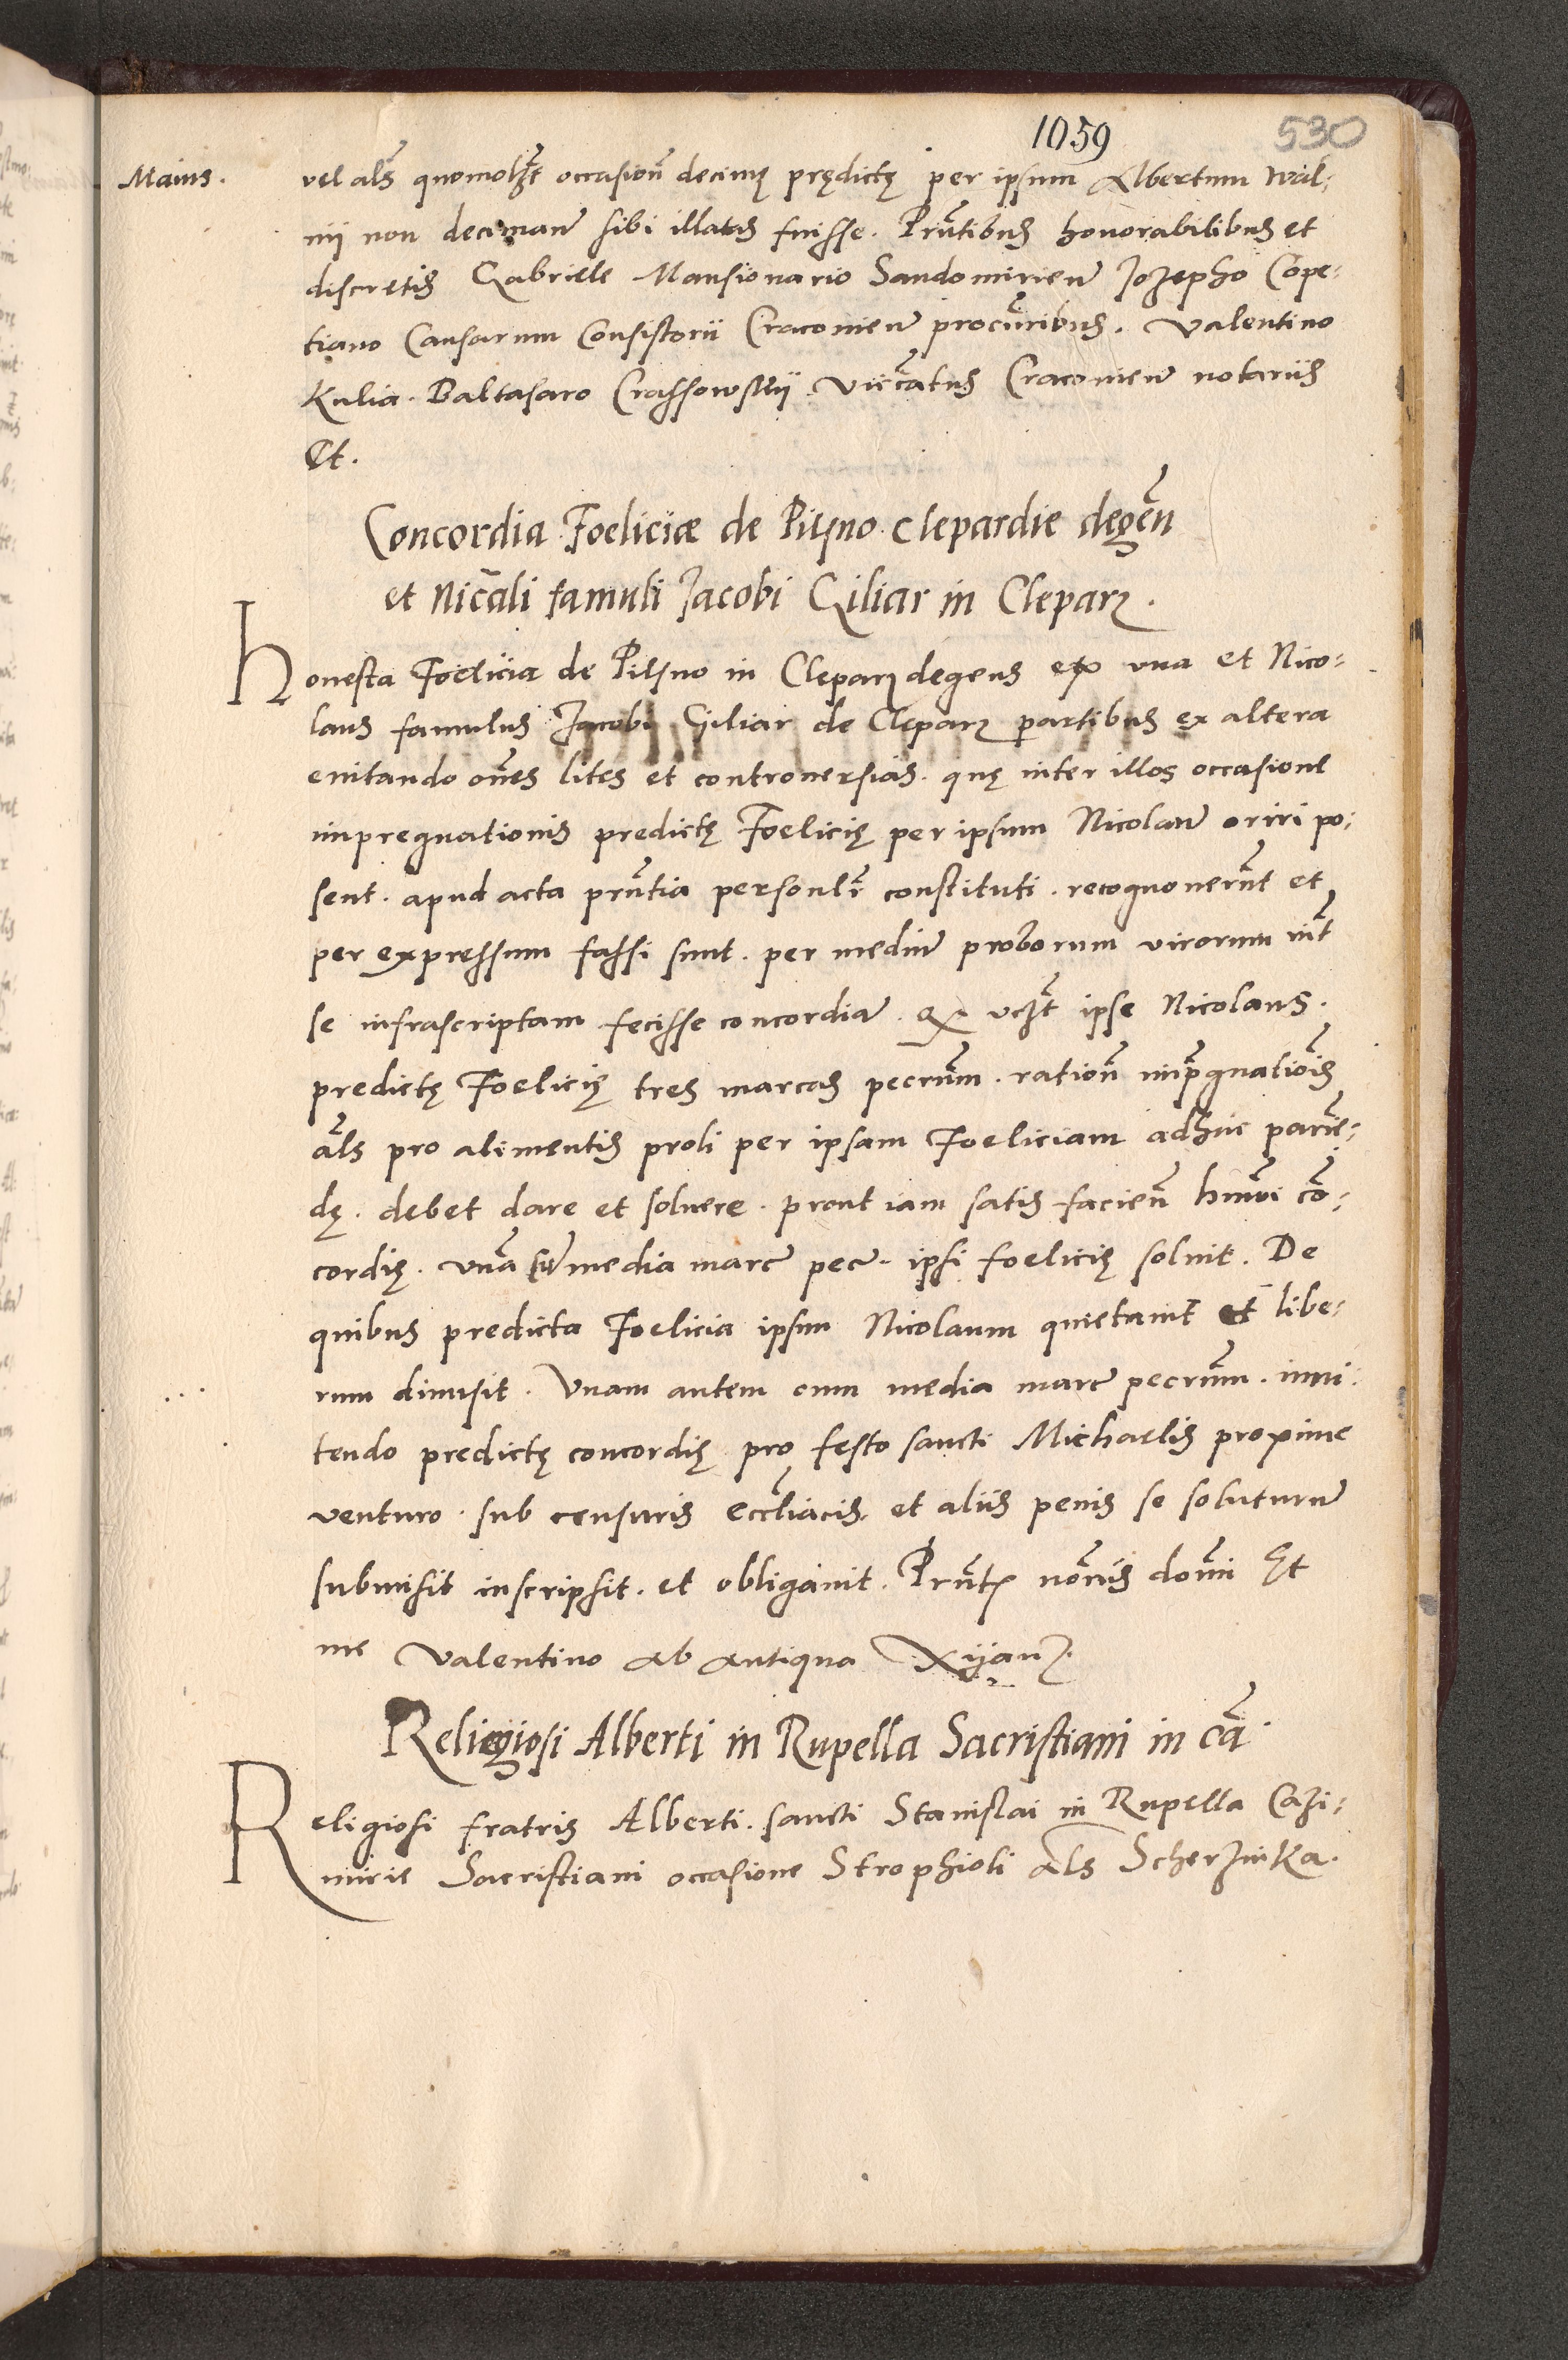 1059
530
Maius.
vel als quomolꝫt occasion decimę prędictę per ipsum Albertum Wal-
nÿ non deciman sibi illatis fuisse. Prntibus honorabilibus et
discretis Gabriele Mansionario Sandomirien Jozepho Cope-
tiano Causarum Consistorii Cracovien procuribus. Valentino
Kulia. Baltasaro Crassowskÿ viccatus Cracovien notariis
Et.
Concordia Foeliciæ de Pilsno Clepardie degen
et Nicali famuli Jacobi Giliar in Cleparz.
Honesta Foelicia de Pilsno in Cleparz degens ex una et Nico-
laus famulus Jacobi Giliar de Cleparz partibus ex altera
evitando oes lites et controversias. quę inter illos occasione
impregnationis predictę Foelicię per ipsum Nicolau oriri po-
sent. apud acta prntia personlr constituti. recognovernt et
per expressum fassi sunt. per mediu proborum virorum int
se infrascriptam fecisse concordia. Qx vcꝫt ipse Nicolaus.
predictę Foelicię tres marcas pecrum. ration imprgnatiois
als pro alimentis proli per ipsam Foeliciam adhuc parie-
dę. debet dare et solvere. prout iam satis facien hmoi co-
cordię. una cu media marc pec. ipsi foelicię solvit. De
quibus predicta Foelicia ipsum Nicolaum quietavit et libe-
rum dimisit. Unam autem cum media marc pecrum. inni-
tendo predictę concordię pro festo sancti Michaelis proxime
venturo. sub censuris eccliacis. et aliis penis se soluturu
submisit inscripsit. et obligavit. Prnt noriis domi Et
me Valentino ab antiqua Xijanz.
Religiosi Alberti in Rupella Sacristiani in ca.
Religiosi fratris Alberti. sancti Stanislai in Rupella Cazi-
mirie Sacristiani occasione Strophioli als Scherzinka.